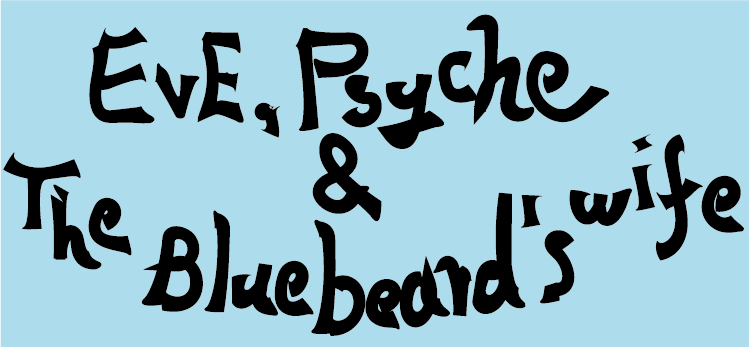 EvE, Psyche
&
The Bluebeard's wife